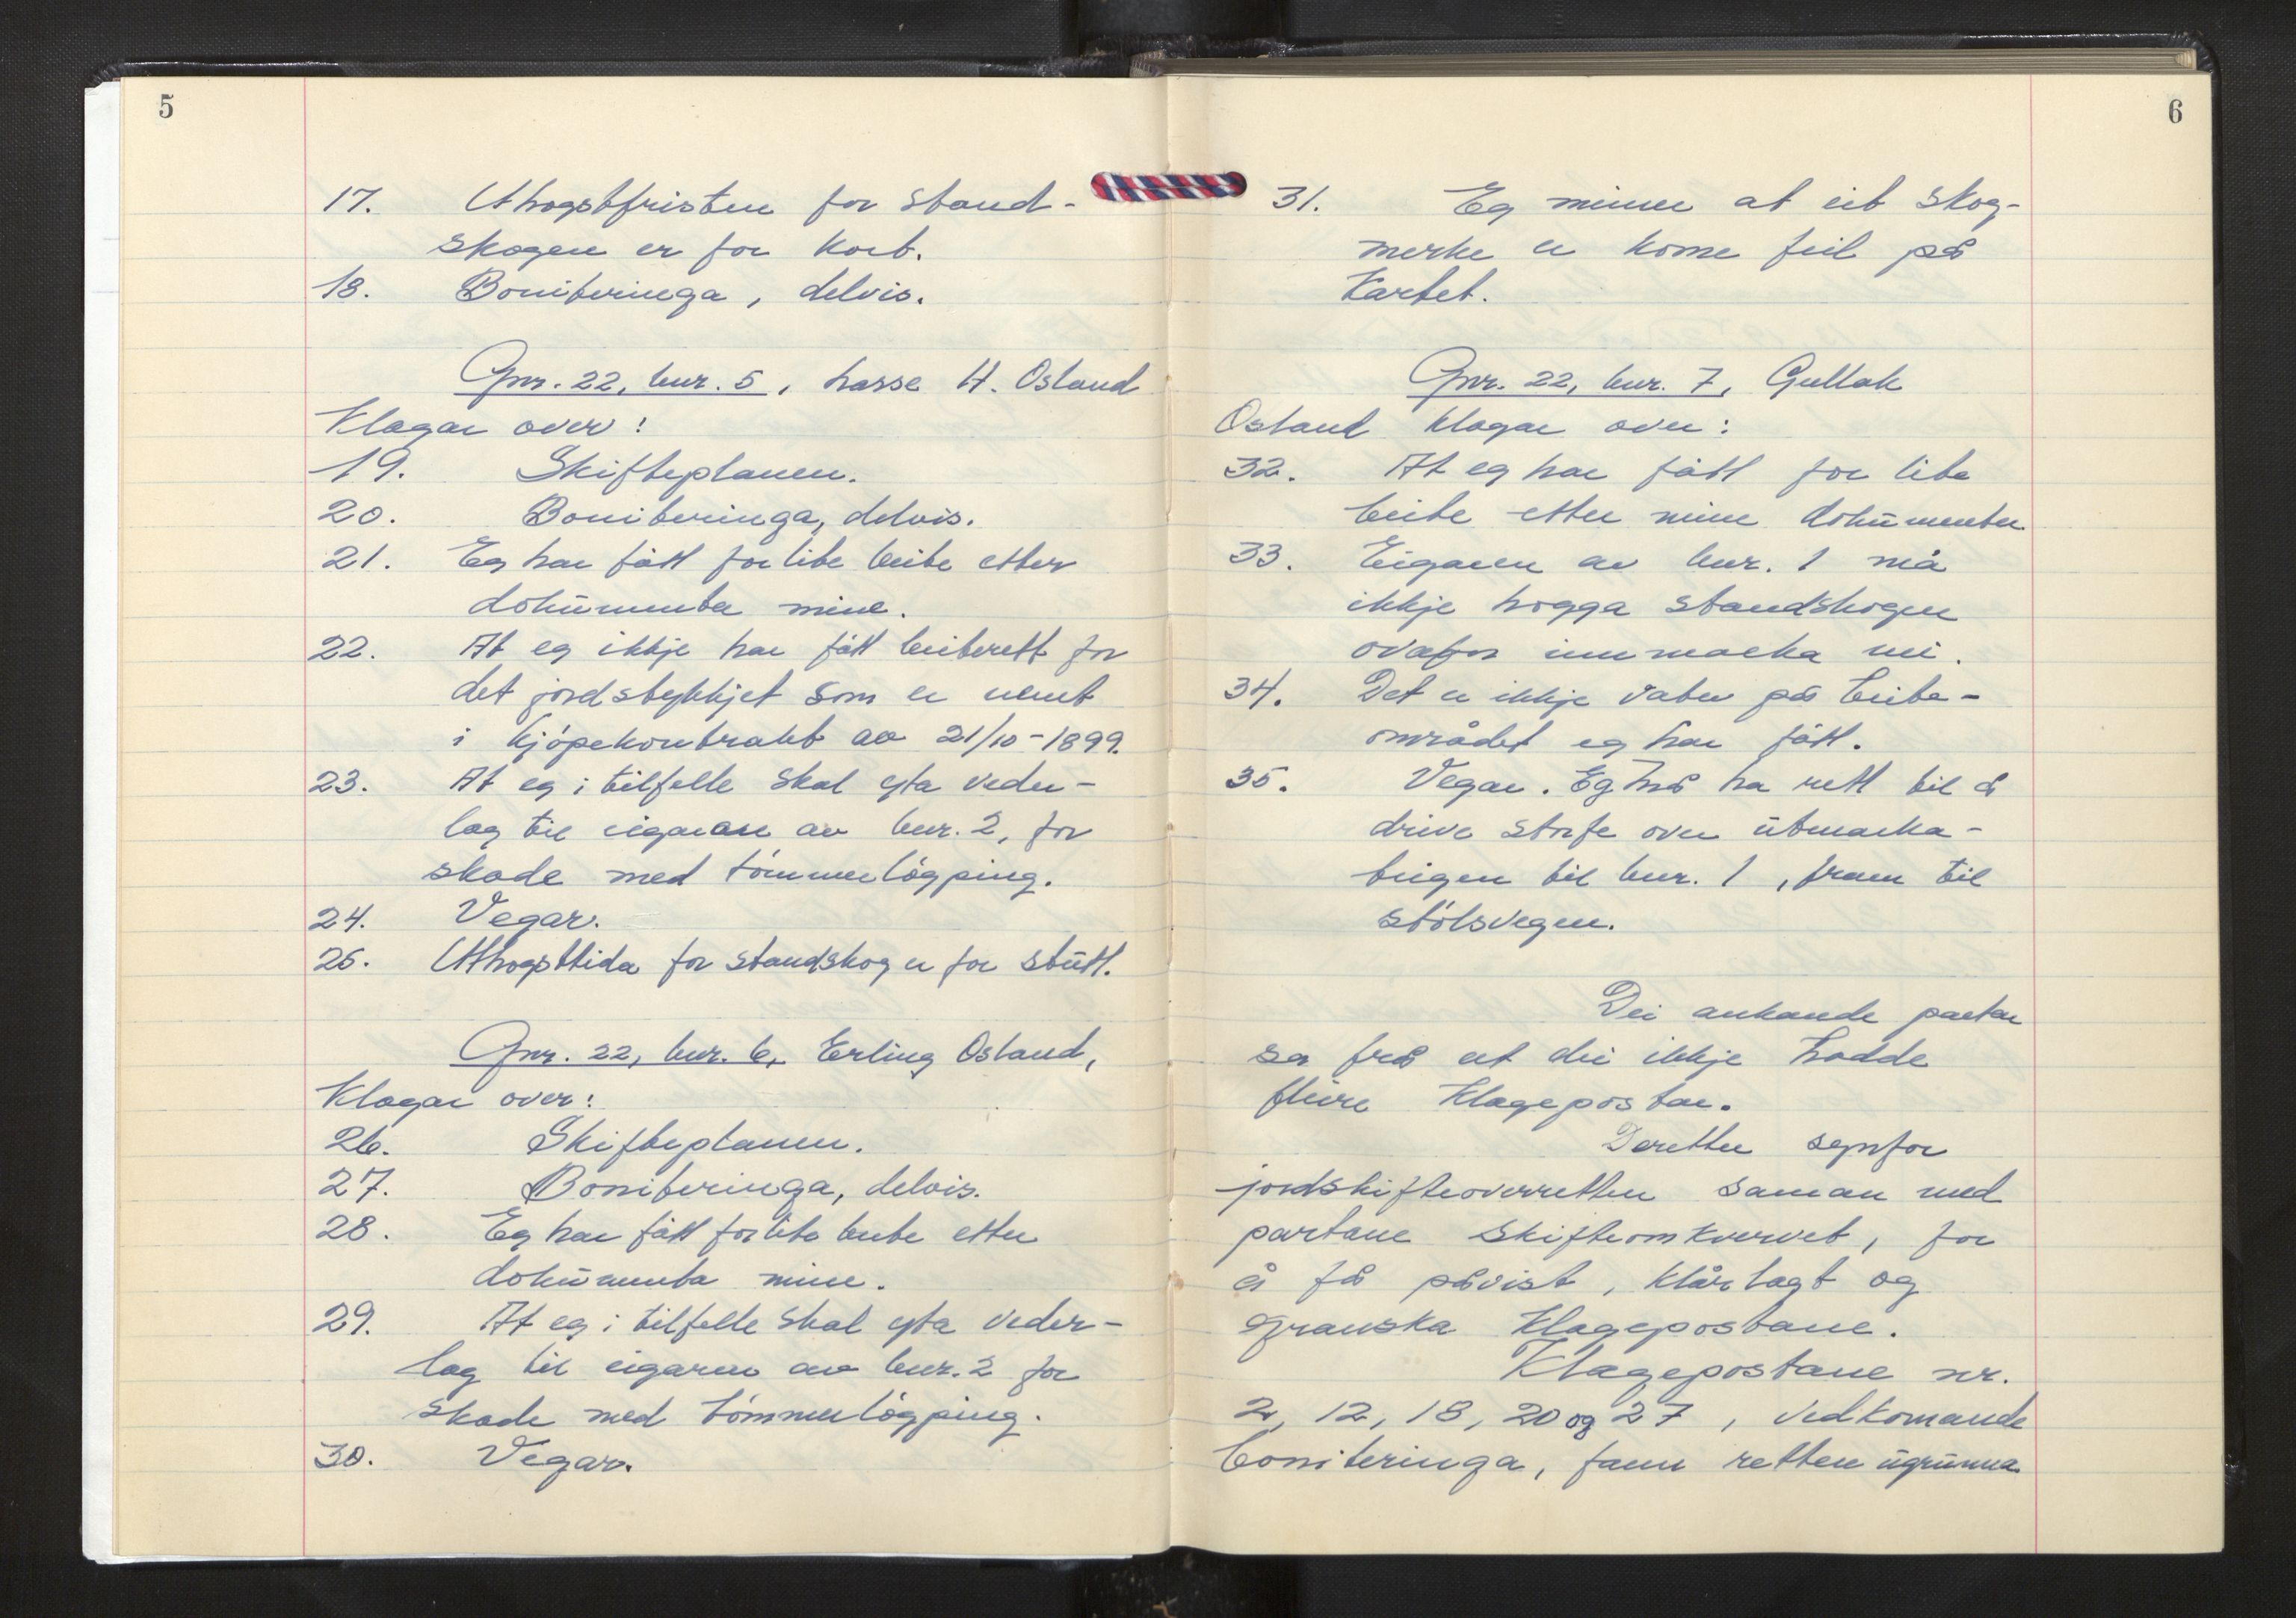 5
17. Uthogstfristen for stand-
skogen er for kort.
18. Boniteringa, delvis.
Gnr. 22, bnr. 5, Lasse H. Osland
klagar over:
19. Skifteplanen.
20. Boniteringa, delvis.
21. Eg har fått for lite beite etter
dokumenta mine.
22. At eg ikkje har fått beiterett for
det jordstykkjet som er nemt
i kjöpekontrakt av 21/10-1899.
23. At eg i tilfelle skal yta veder-
lag til eigaren av bnr. 2, for
skade med tömmerlöyping.
24. Vegar.
25. Uthogsttida for standskog er for stutt.
Gnr. 22, bnr. 6, Erling Osland,
klagar over:
26. Skifteplanen.
27. Boniteringa, delvis.
28. Eg har fått for lite beite etter
dokumenta mine.
29. At eg i tilfelle skal yta veder-
lag til eigaren av bnr. 2 for
skade med tömmerlöyping.
30. Vegar.
6
31. Eg meiner at eit skog-
merke er kome feil på
kartet.
Gnr. 22, bnr. 7, Gullak
Osland klagar over:
32. At eg har fått for lite
beite etter mine dokumenter
33. Eigaren av bnr. 1 må
ikkje hogga standskogen
ovafor innmarka mi.
34. Det er ikkje vatn på beite-
området eg har fått.
35. Vegar. Eg må ha rett til å
drive storfe over utmarka-
teigen til bnr. 1, fram til
stölsvegen.
Dei ankande partar
sa frå at dei ikkje hadde
fleire klagepostar.
Deretter synfor
jordskifteoverretten saman med
partane skifteomkvervet, for
å få påvist, klårlagt og
granska klagepostane.
Klagepostane nr.
2, 12, 18, 20 og 27, vedkomande
boniteringa, fann retten ugrunna